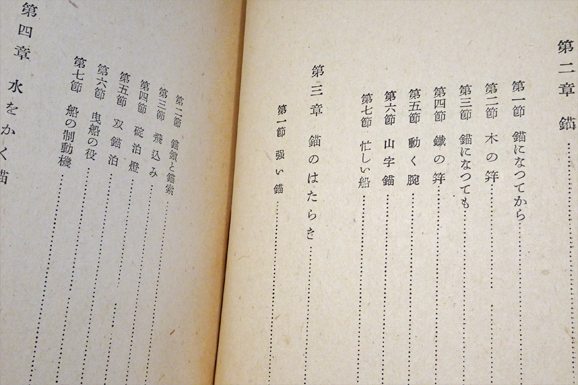 第二章 錨
第一節 錨になつてから
第二節 木の錊
第三節 錨になつても
第四節 鐵の錊
第五節 動く腕
第六節 山字錨
第七節 忙しい船
第三章 錨のはたらき
第一節 强い錨
第二節 錨鎖と錨索
第三節 飛込み
第四節 碇泊燈
第五節 双錨泊
第六節 曳船の役
第七節 船の制動機
第四章 水をかく錨